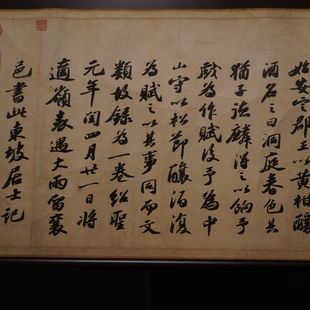 始安定郡王以黄柑釀
酒名之曰洞庭春色其
猶子德麟得之以餉予
戯為作賦後予為中
山守以松節釀酒復
為賦之以其事同而文
類故録為一卷紹聖
元年閏四月廿一日將
適嶺表遇大雨留襄
邑書此東坡居士記